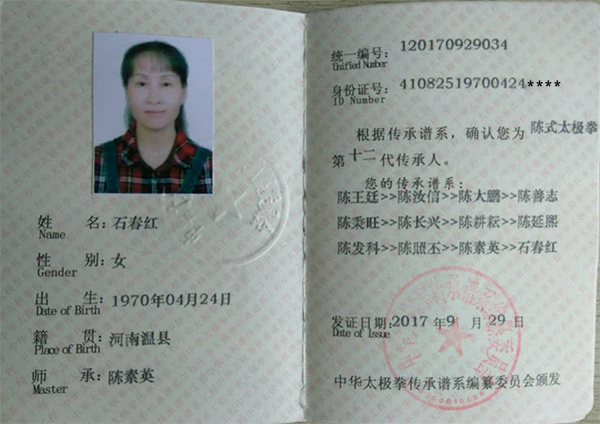 姓 名：石春红
Name
性 别：女
Gender
出 生：1970年04月24日
Date of Birth
籍 贯：河南温县
Place of Birth
师 承：陈素英
Master
统一编号：120170929034
Unified Number
身份证号：41082519700424****
ID Number
根据传承谱系，确认您为 陈式太极拳
第 十二 代传承人。
您的传承谱系：
陈王廷>>陈汝信>>陈大鹏>>陈善志
陈秉旺>>陈长兴>>陈耕耘>>陈延熙
陈发科>>陈照丕>>陈素英>>石春红
发证日期：2017 年9 月 29 日
Date of Issue
中华太极拳传承谱系编纂委员会颁发